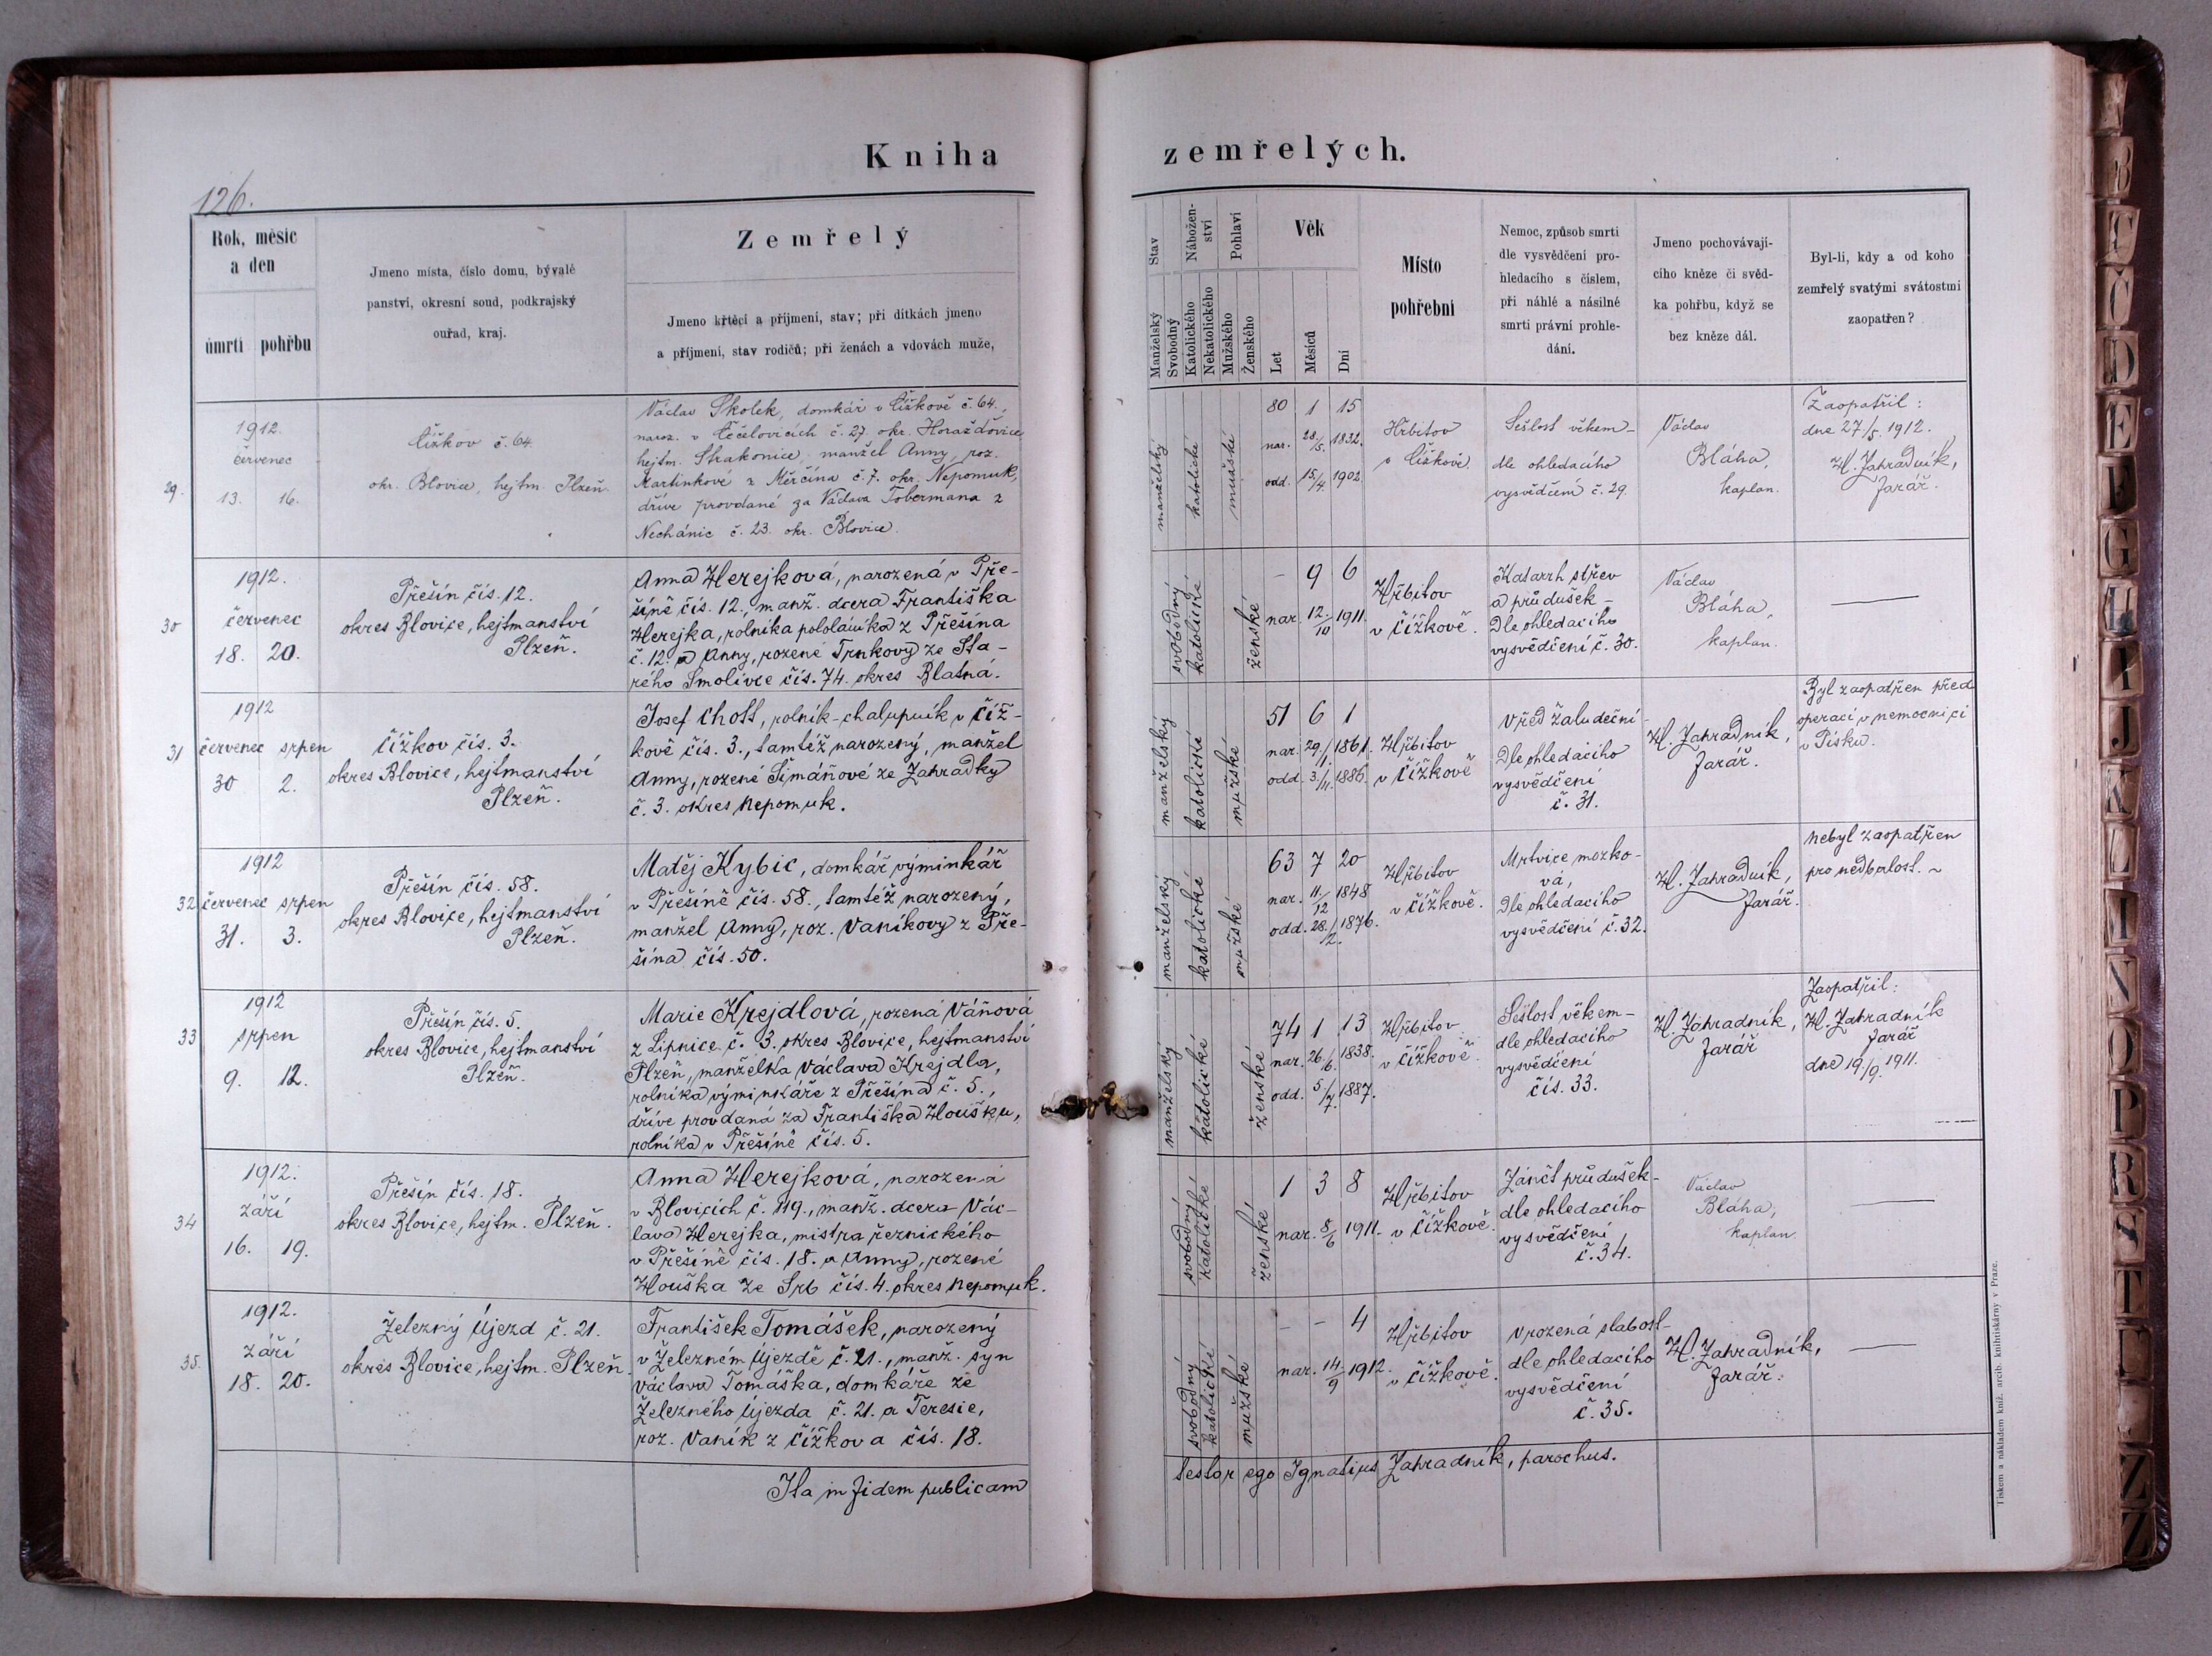 Kniha
zemřelých.
126.
Rok, měsíc
a den
úmrtí pohřbu
Jmeno místa, číslo domu, bývalé
panství, okresní soud, podkrajský
ouřad, kraj.
Zemřelý
Jmeno křtěcí a příjmení, stav; při dítkách jmeno
a příjmení, stav rodičů; při ženách a vdovách muže,
Stav
Manželský
Svobodný
Nábožen-
ství
Katolického
Nekatolického
Pohlaví
Mužského
Ženského
Věk
Let
Měsíců
Dní
Místo
pohřební
Nemoc, způsob smrti
dle vysvědčení pro-
hledacího s číslem,
při náhlé a násilné
smrti právní prohle-
dání.
Jmeno pochovávají-
cího kněze či svěd-
ka pohřbu, když se
bez kněze dál.
Byl-li, kdy a od koho
zemřelý svatými svátostmi
zaopatřen?
29.
1912.
červenec
13. 16.
Čížkov č. 64.
okr. Blovice, hejtm. Plzeň.
Václav Skolek, domkář v Čížkově č. 64.,
naroz. v Čečelovicích č. 27. okr. Horažďovice
hejtm. Strakonice, manžel Anny, roz.
Martínkové z Měrčína č. 7. okr. Nepomuk,
dříve provdané za Václava Tobermana z
Nechánic č. 23. okr. Blovice.
manželský
katolické
mužské
80 1 15
nar. 28./5. 1832.
odd. 15./4. 1902
Hřbitov
v Čížkově.
Sešlost věkem-
dle ohledacího
vysvědčení č. 29.
Václav
Bláha,
kaplan.
Zaopatřil:
dne 27/5. 1912.
H. Zahradník,
farář.
30
1912.
červenec
18. 20.
Přešín čís. 12.
okres Blovice, hejtmanství
Plzeň.
Anna Herejková, narozená v Pře-
šíně čís. 12., manž. dcera Františka
Herejka, rolníka pololáníka z Přešína
č. 12. a Anny, rozené Trnkovy ze Sta-
rého Smolivce čís. 74. okres Blatná.
svobodný
katolické
ženské
- 9 6
nar. 12./10 1911.
Hřbitov
v Čížkově.
Katarrh střev
a průdušek-
Dle ohledacího
vysvědčení č. 30.
Václav
Bláha,
kaplan.
31
1912
červenec srpen
30 2.
Čížkov čís. 3.
okres Blovice, hejtmanství
Plzeň.
Josef Chott, rolník-chalupník v Číž-
kově čís. 3., tamtéž narozený, manžel
Anny, rozené Šimáňové ze Zahrádky
č. 3. okres Nepomuk.
manželský
katolické
mužské
51 6 1
nar. 29./1. 1861.
odd. 3./11. 1886.
Hřbitov
v Čížkově
Vřed žaludeční-
Dle ohledacího
vysvědčení
č. 31.
H. Zahradník,
farář.
Byl zaopatřen před
operací v nemocnici
v Písku.
32
1912
červenec srpen
31. 3.
Přešín čís. 58.
okres Blovice, hejtmanství
Plzeň.
Matěj Kybic, domkář výminkář
v Přešíně čís. 58., tamtéž narozený,
manžel Anny, roz. Vaníkovy z Pře-
šína čís. 50.
manželský
katolické
mužské
63 7 20
nar. 11./12 1848
odd. 28./2. 1876.
Hřbitov
v Čížkově.
Mrtvice mozko-
vá,
Dle ohledacího
vysvědčení č. 32.
H. Zahradník,
farář.
Nebyl zaopatřen
pro nedbalost. ~
33
1912
srpen
9. 12.
Přešín čís. 5.
okres Blovice, hejtmanství
Plzeň.
Marie Krejdlová, rozená Váňová
z Lipnice č. 3. okres Blovice, hejtmanství
Plzeň, manželka Václava Krejdla,
rolníka výminkáře z Přešína č. 5.,
dříve provdaná za Františka Houšku,
rolníka v Přešíně čís. 5.
manželský
katolické
ženské
74 1 13
nar. 26./6. 1838.
odd. 5./7. 1887.
Hřbitov
v Čížkově.
Sešlost věkem-
dle ohledacího
vysvědčení
čís. 33.
H. Zahradník,
farář
Zaopatřil:
H. Zahradník
farář
dne 19./9. 1911.
34
1912.
září
16. 19.
Přešín čís. 18.
okres Blovice, hejtm. Plzeň.
Anna Herejková, narozená
v Blovicích č. 119., manž. dcera Vác-
lava Herejka, mistra řeznického
v Přešíně čís. 18. a Anny, rozené
Houška ze Srb čís. 4. okres Nepomuk.
svobodný
katolické
ženské
1 3 8
nar. 8/6 1911.
Hřbitov
v Čížkově.
Zánět průdušek-
dle ohledacího
vysvědčení
č. 34.
Václav
Bláha,
kaplan.
35.
1912.
září
18. 20.
Železný Újezd č. 21.
okres Blovice, hejtm. Plzeň.
František Tomášek, narozený
v Železném Újezdě č. 21., manž. syn
Václava Tomáška, domkáře ze
Železného Újezda č. 21. a Teresie,
roz. Vaník z Čížkova čís. 18.
svobodný
katolické
mužské
- - 4
nar. 14/9 1912.
Hřbitov
v Čížkově.
Vrozená slabost-
dle ohledacího
vysvědčení
č. 35.
H. Zahradník,
farář.
Ita in fidem publicam
testor ego Ignatius Zahradník, parochus.
Tiskem a nákladem kníž. arcib. knihtiskárny v Praze.
B
C
D
E
F
G
H
I
J
K
L
N
O
P
R
S
T
Z
Ž